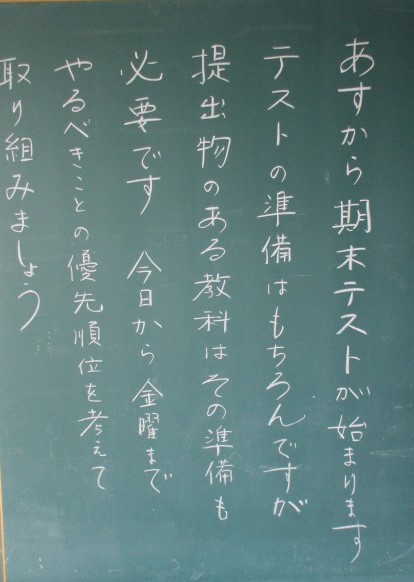 あすから期末テストが始まります
テストの準備はもちろんですが
提出物のある教科はその準備も
必要です 今日から金曜まで
やるべきことの優先順位を考えて
取り組みましょう